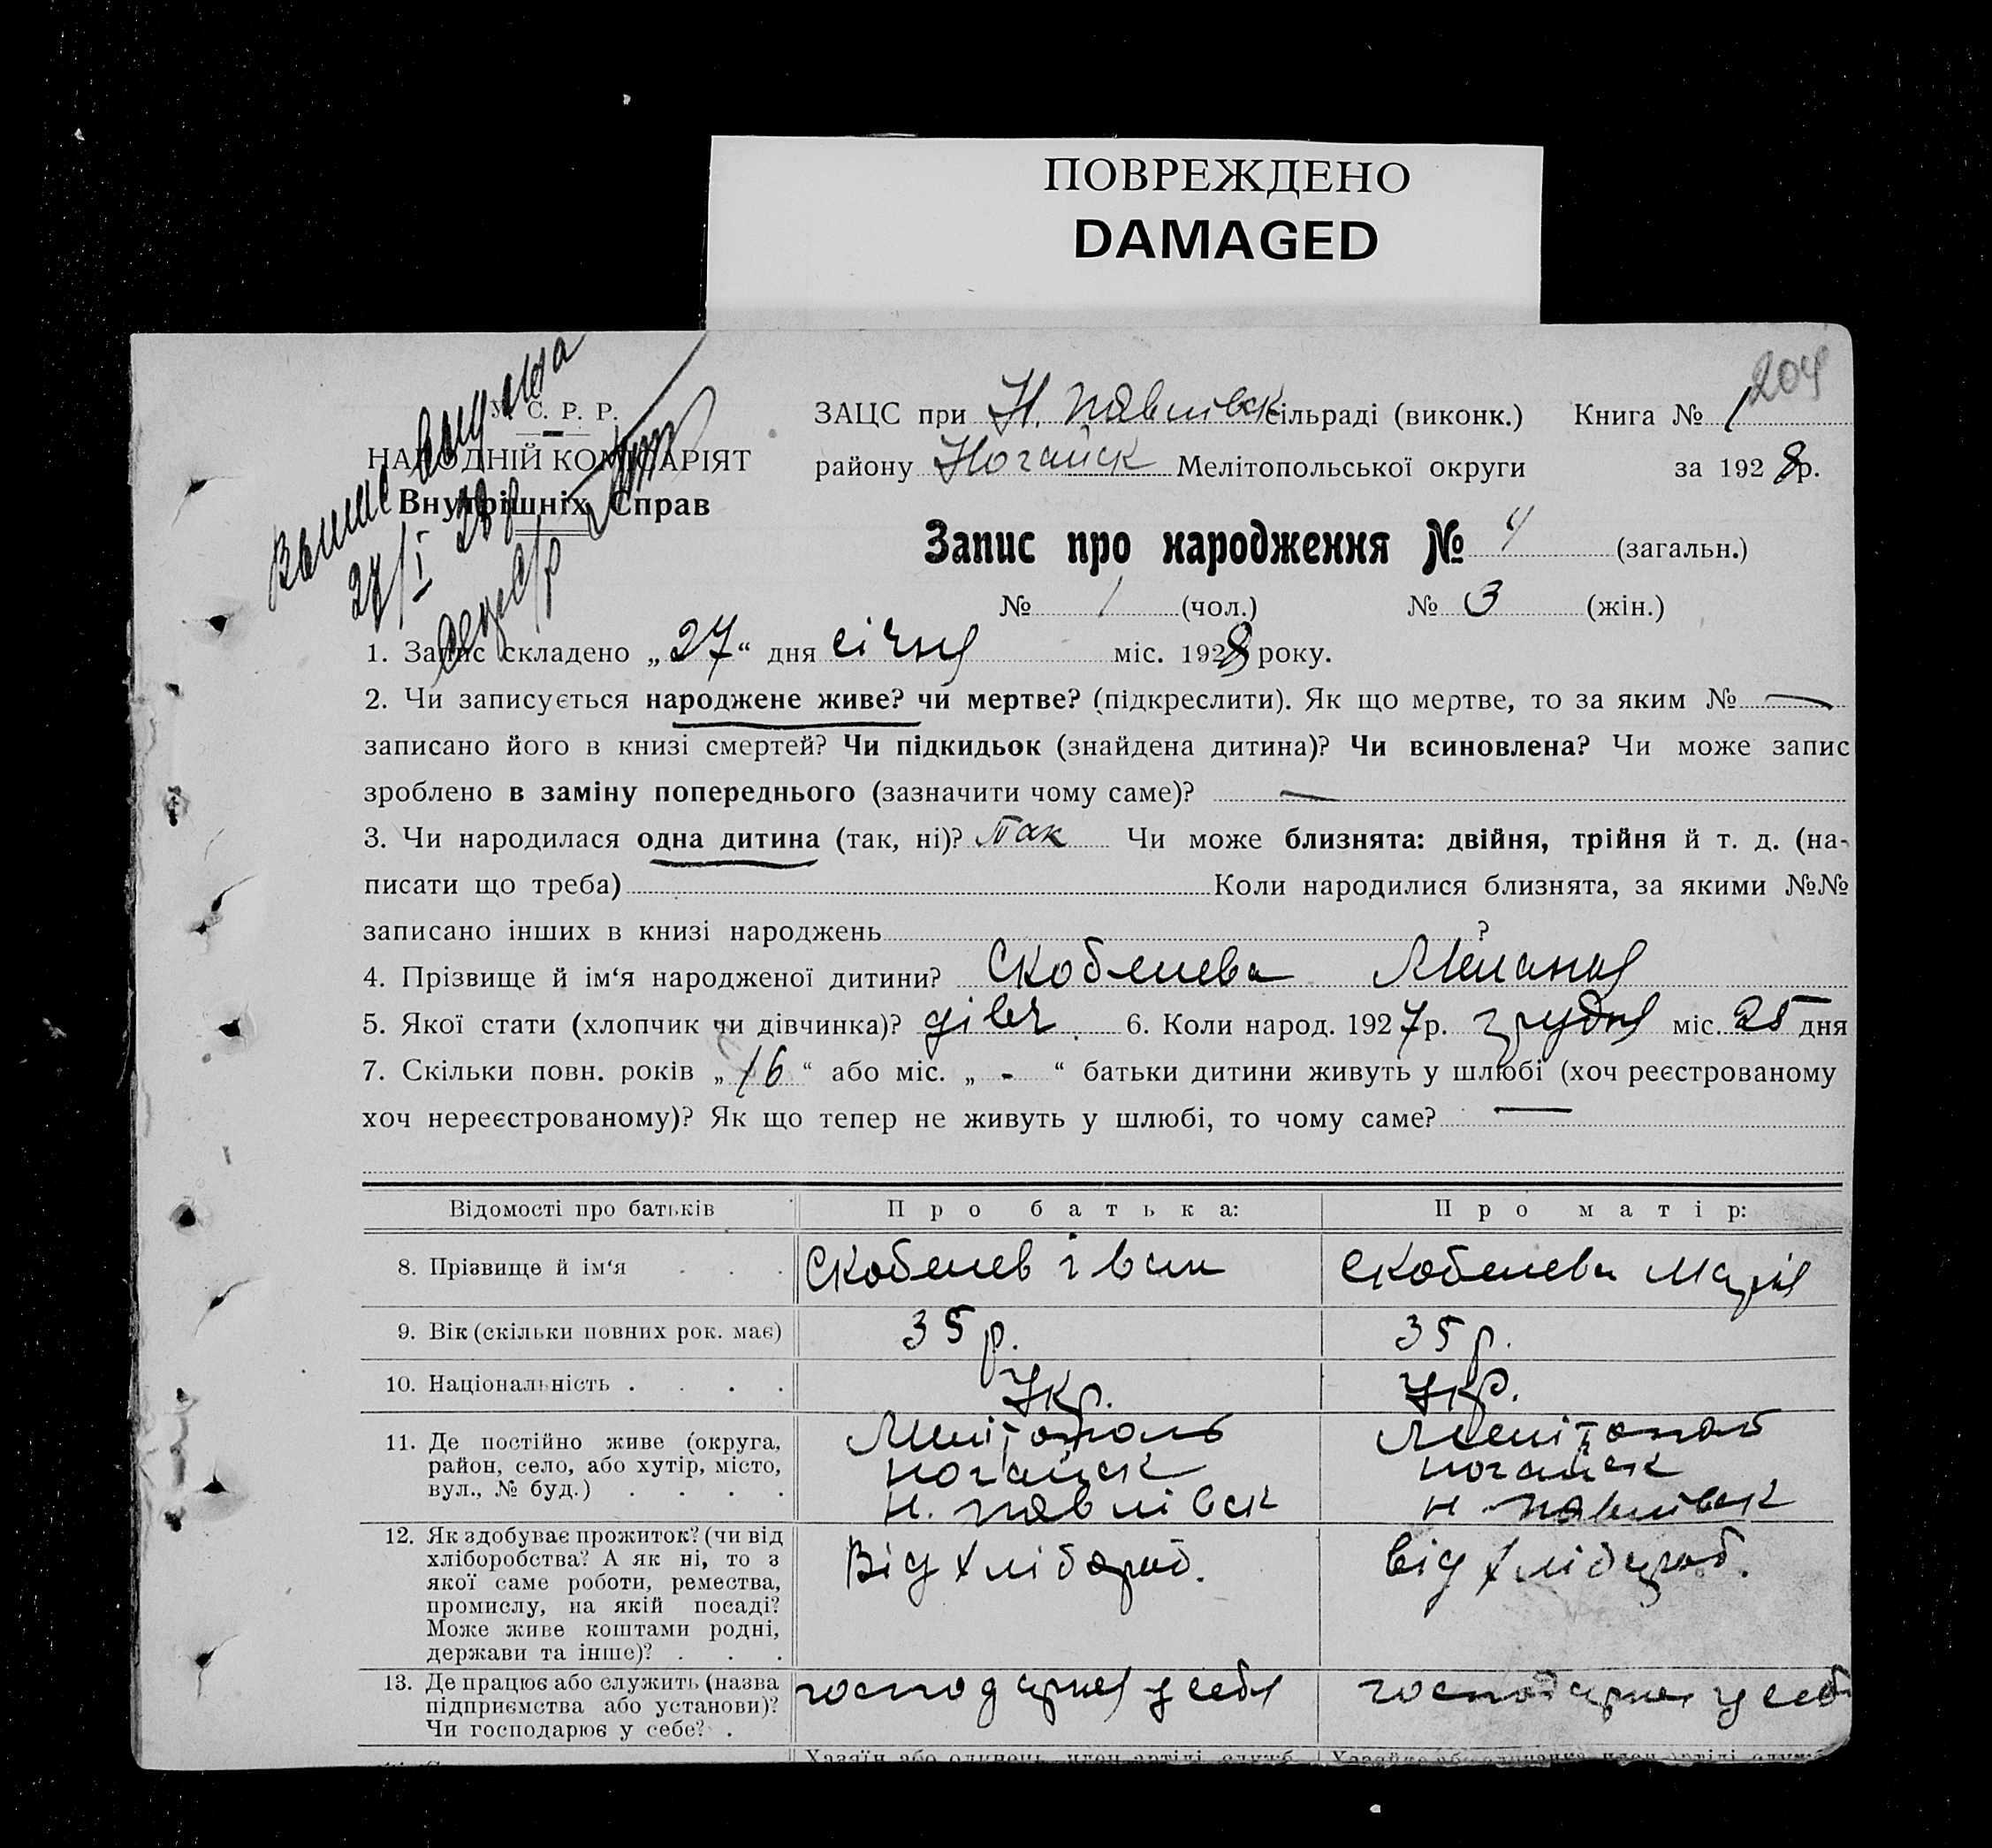 ПОВРЕЖДЕНО
DAMAGED
204
У. С. Р. Р.
НАРОДНІЙ КОМІСАРІЯТ
Внутрішніх Справ
27/I 28
ЗАЦС при Н. Павлівск сільраді (виконк.) Книга № 1
району Ногайск Мелітопольської округи за 1928 р.
Запис про народження № 4 (загальн.)
№ 1 (чол.) № 3 (жін.)
1. Запис складено „27“ дня січня міс. 1928 року.
2. Чи записується народжене живе? чи мертве? (підкреслити). Як що мертве, то за яким № —
записано його в книзі смертей? Чи підкидьок (знайдена дитина)? Чи всиновлена? Чи може запис
зроблено в заміну попереднього (зазначити чому саме)? —
3. Чи народилася одна дитина (так, ні)? так Чи може близнята: двійня, трійня й т. д. (на-
писати що треба) Коли народилися близнята, за якими №№
записано інших в книзі народжень ?
4. Прізвище й ім‘я народженої дитини? Скобелева Меланія
5. Якої стати (хлопчик чи дівчинка)? дівч. 6. Коли народ. 1927 р. грудня міс. 25 дня
7. Скільки повн. років „16“ або міс. „-“ батьки дитини живуть у шлюбі (хоч реєстрованому
хоч нереєстрованому)? Як що тепер не живуть у шлюбі, то чому саме? —
Відомості про батьків Про батька: Про матір:
8. Прізвище й ім‘я . . . Скобелев Іван Скобелева Марія
9. Вік (скільки повних рок. має) 35 р. 35 р.
10. Національність . . . . Укр. Укр.
11. Де постійно живе (округа, Мелітополь Мелітополь
район, село, або хутір, місто, Ногайск Ногайск
вул., № буд.) . . . . Н. Павлівск Н Павлівск
12. Як здобуває прожиток? (чи від Від хлібороб. від хлібороб.
хліборобства? А як ні, то з
якої саме роботи, ремества,
промислу, на якій посаді?
Може живе коштами родні,
держави та інше)? . . .
13. Де працює або служить (назва господарює у себя господарює у себ
підприємства або установи)?
Чи господарює у себе? .
Хазяїн або одинець, член артілі, служб. Хазяйка або одиначка, член артілі, служб